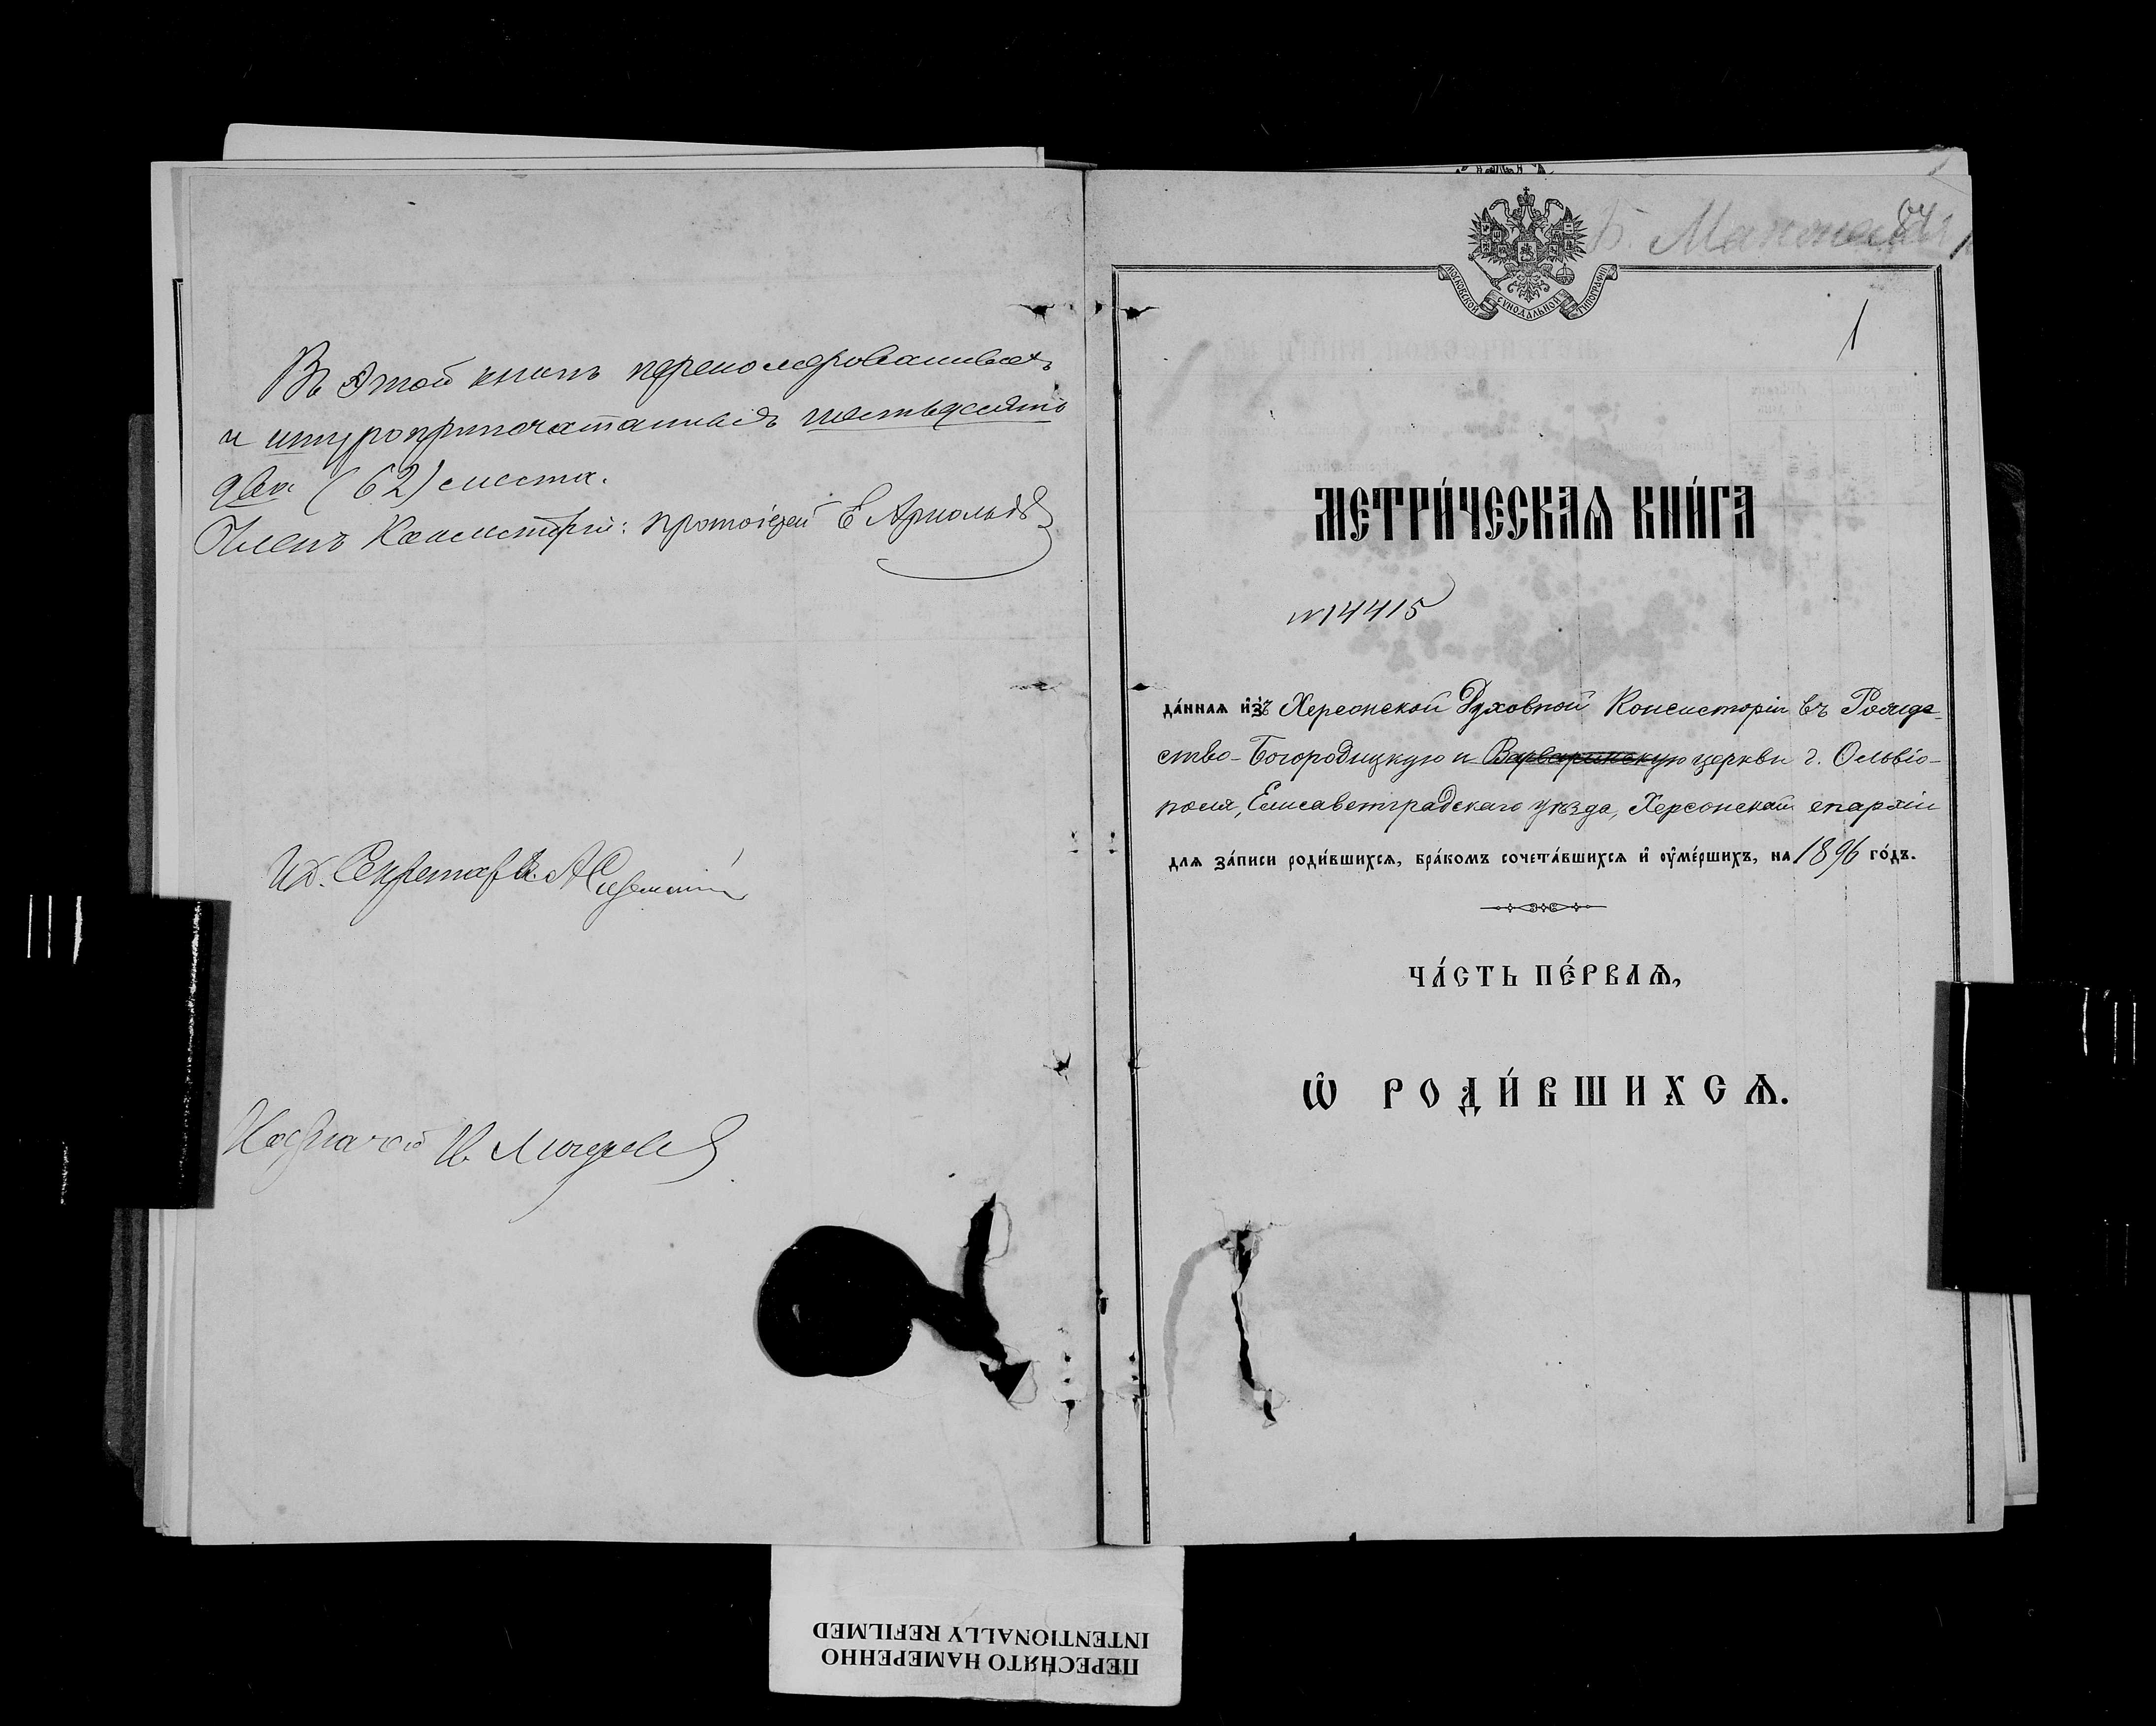 Въ этой книгѣ перенумерованныхъ
и шнуроприпечатанныхъ шестьдесятъ
два (62) листа.
Членъ Консисторіи: протоіерей Е Арнольдъ
И.д. Секретаря А
Казначей И.
1
МОСКОВСКОЙ СѴНОДАЛЬНОЙ ТИПОГРАФІИ
МЕТРИ́ЧЕСКАѦ КНИ́ГА
№ 14415
да́ннаѧ и҆зъ Херсонской Духовной Консисторіи въ Рожде-
ство-Богородицкую и Варваринскую церкви г. Ольвіо-
поля, Елисаветградскаго уѣзда, Херсонской епархіи
для за́писи роди́вшихсѧ, бра́комъ сочета́вшихсѧ и҆ ᲂу҆ме́ршихъ, на 1896 го́дъ.
ЧА́СТЬ ПЕ́РВАѦ,
Ѡ҆ РОДИ́ВШИХСѦ.
ПЕРЕСНЯТО НАМЕРЕННО
INTENTIONALLY REFILMED